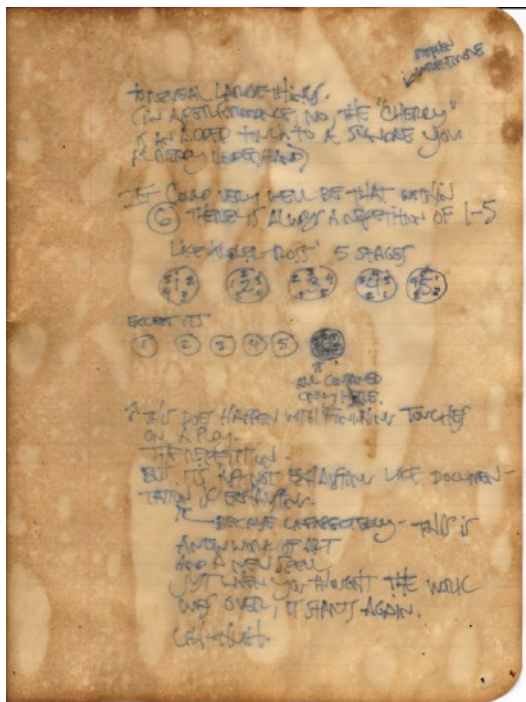 TO REVEAL LARGE THINGS.
(IN A PERFORMANCE, NO, THE "CHERRY"
IS AN ADDED TOUCH TO A SOMEONE YOU
ALREADY UNDERSTAND)
IT COULD VERY WELL BE THAT WITHIN
6 THERE IS ALWAYS A REPETITION OF 1-5
LIKE KUBLER-ROSS' 5 STAGES
1 2 3 4 5
EXCEPT IT'S
1 2 3 4 5
ALL CONTAINED
ONLY HERE.
THIS DOES HAPPEN WITH FINISHING TOUCHES
ON A PLAY.
THE REPETITION.
BUT IT'S NOT EXHAUSTING LIKE DOCUMEN-
TATION IS EXHAUSTING.
BECAUSE UNEXPECTEDLY - THIS IS
A NEW WORK OF ART
AND A NEW SPELL,
JUST WHEN YOU THOUGHT THE WORK
WAS OVER, IT STARTS AGAIN.
UH-HUH.